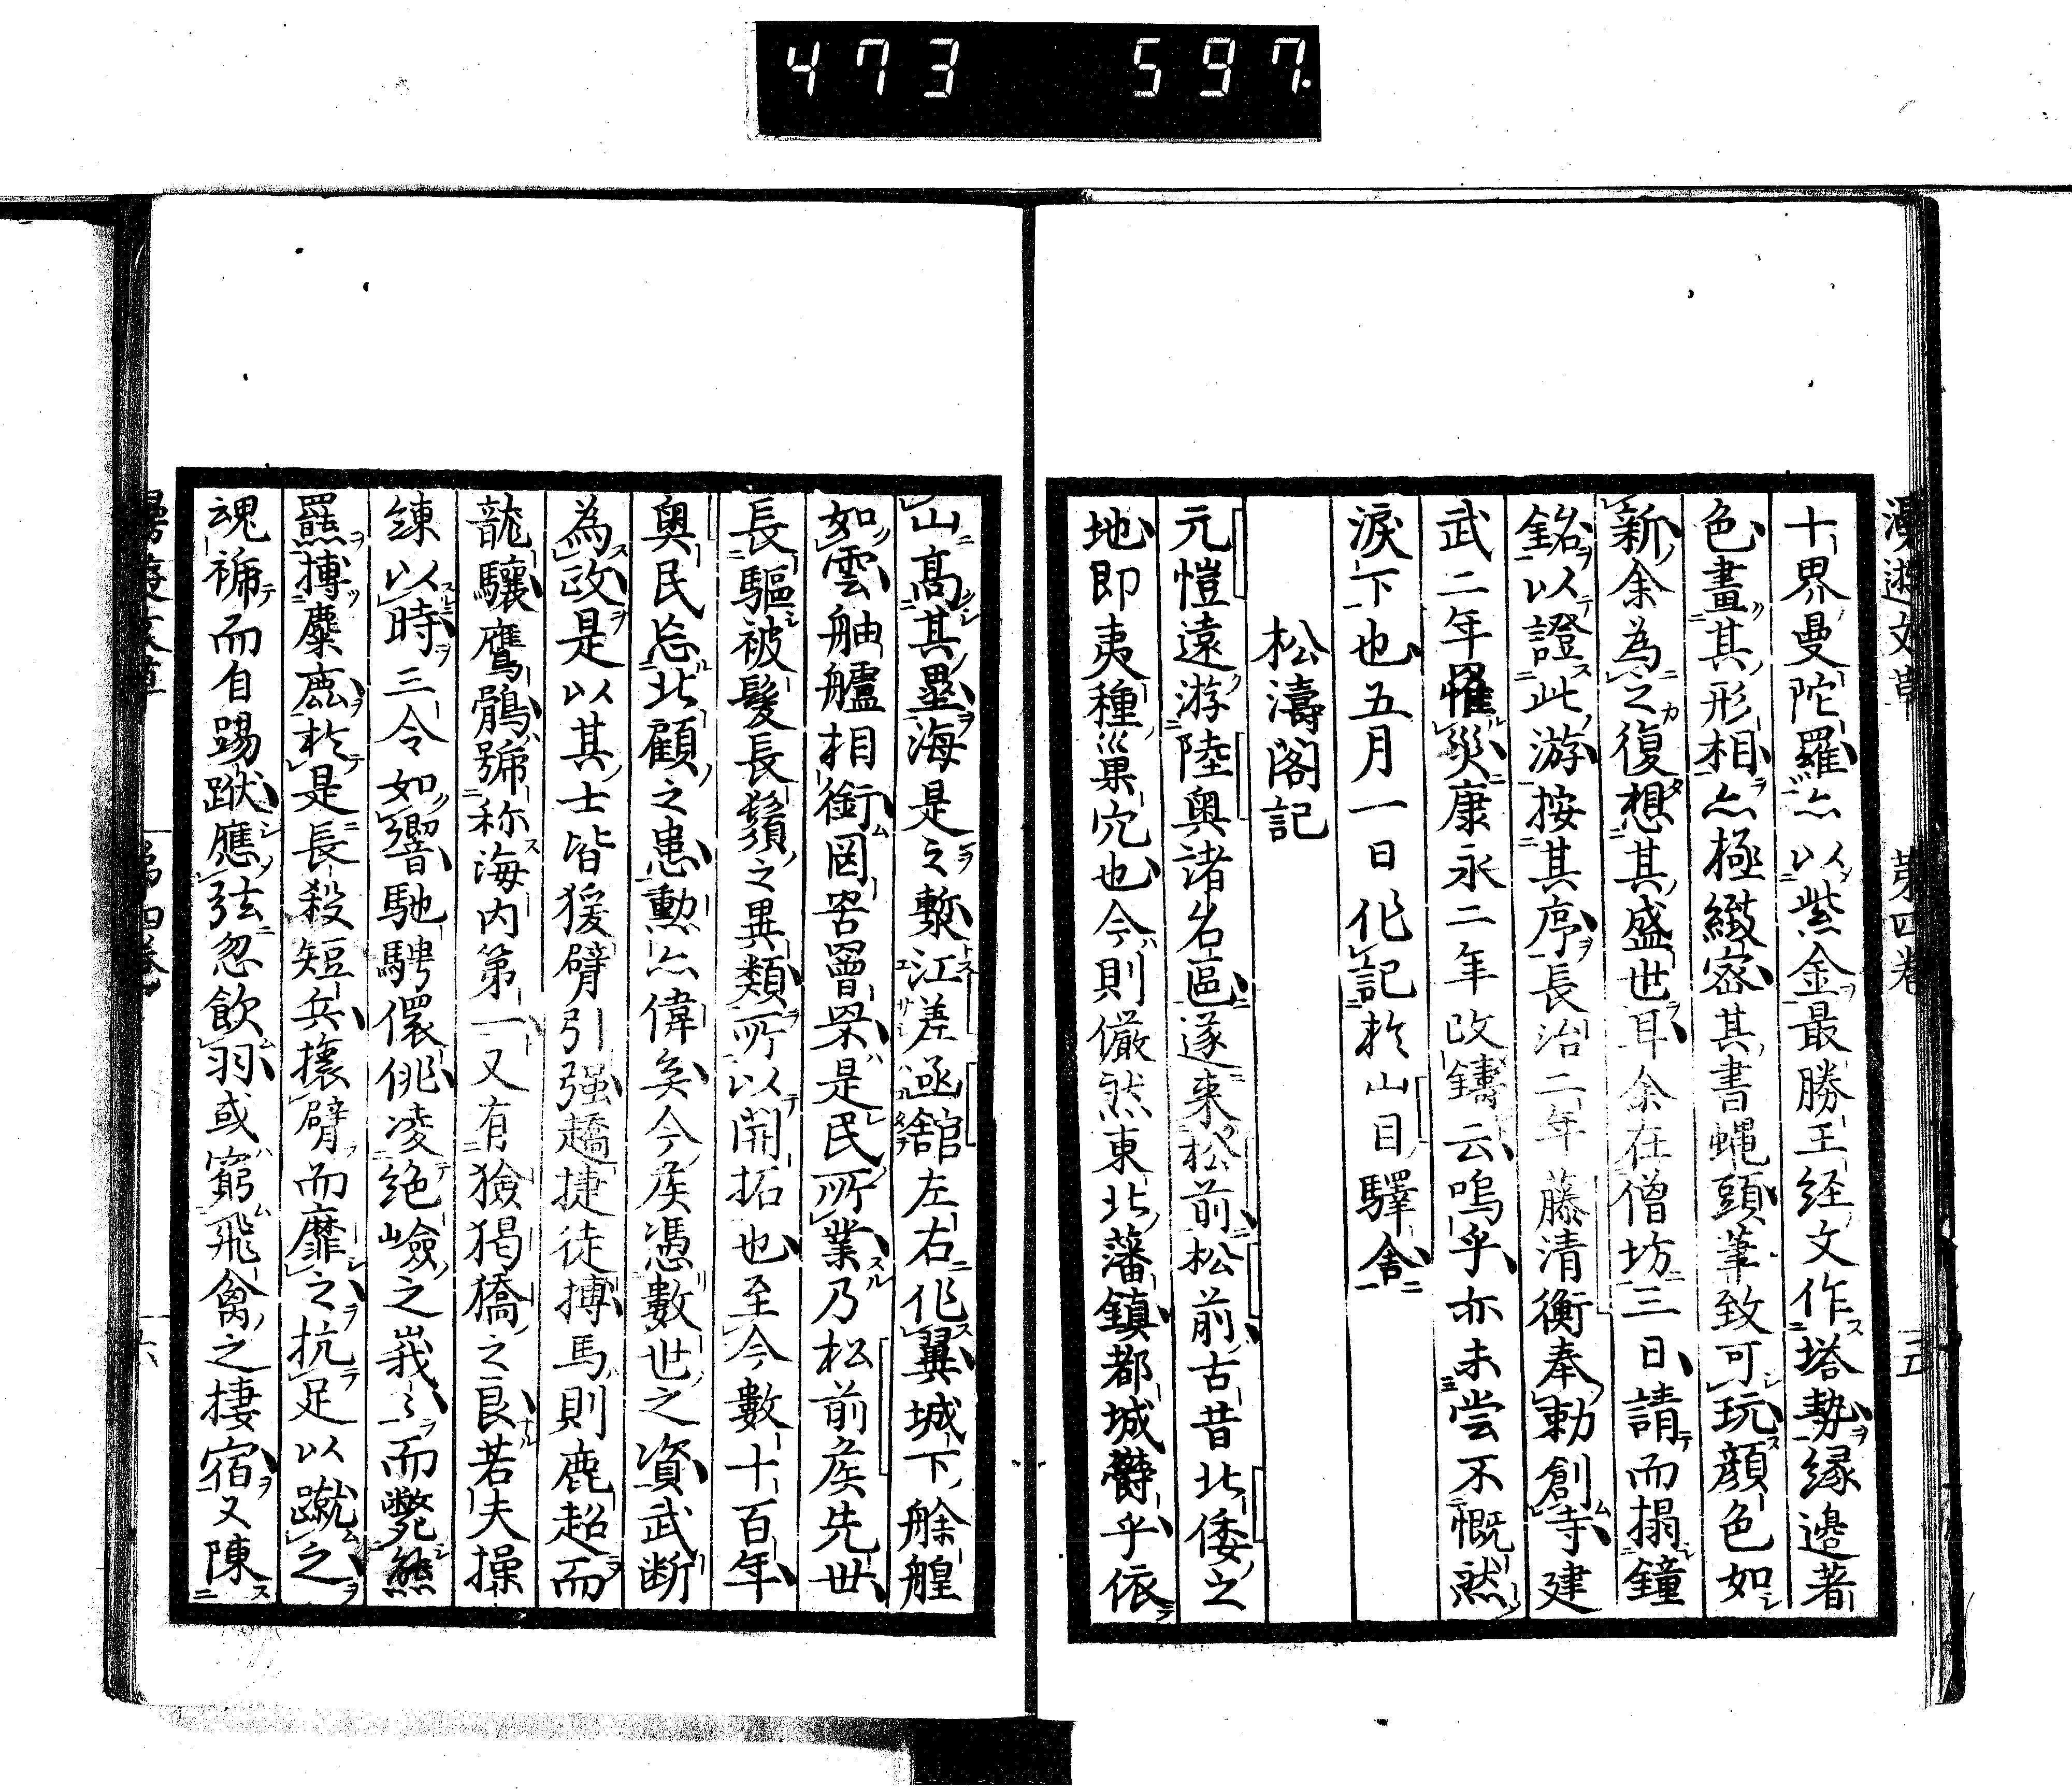 473 597.
漫遊文草 第四卷 五
十界曼陀羅亦以紫金最勝王経文作塔勢縁邊著
色畫其形相亦極緻密其書蝿頭筆致可玩顔色如
新余為之復想其盛世耳余在僧坊三日請而搨鐘
銘以證此游按其序長治二年藤清衡奉勅創寺建
武二年罹災康永二年改鑄云嗚乎亦未嘗不慨然
淚下也五月一日作記於山目驛舎
松濤閣記
元愷遠游陸奥諸名區遂来松前松前古昔北倭之
地即夷種巣穴也今則儼然東北藩鎮都城欝乎依
山高其壘海是之塹江差亟舘左右作翼城下艅艎
如雲舳艫相銜罔罟罾罙是民所業乃松前矦先世
長驅被髮長鬚之異類所以開拓也至今數十百年
奥民忘北顧之患勳亦偉矣今矦憑數世之資武断
為政是以其士皆猨臂引强趫捷徒搏馬則鹿超而
龍驤鷹鶻號称海内第一又有獫猲獢之良若夫操
錬以時三令如響馳騁儇佻凌絶嶮之峩〻而斃熊
羆搏麋鹿於是長殺短兵攘臂而靡之抗足以蹴之
魂褫而自踢蹴應弦忽飲羽或窮飛禽之捿宿又陳